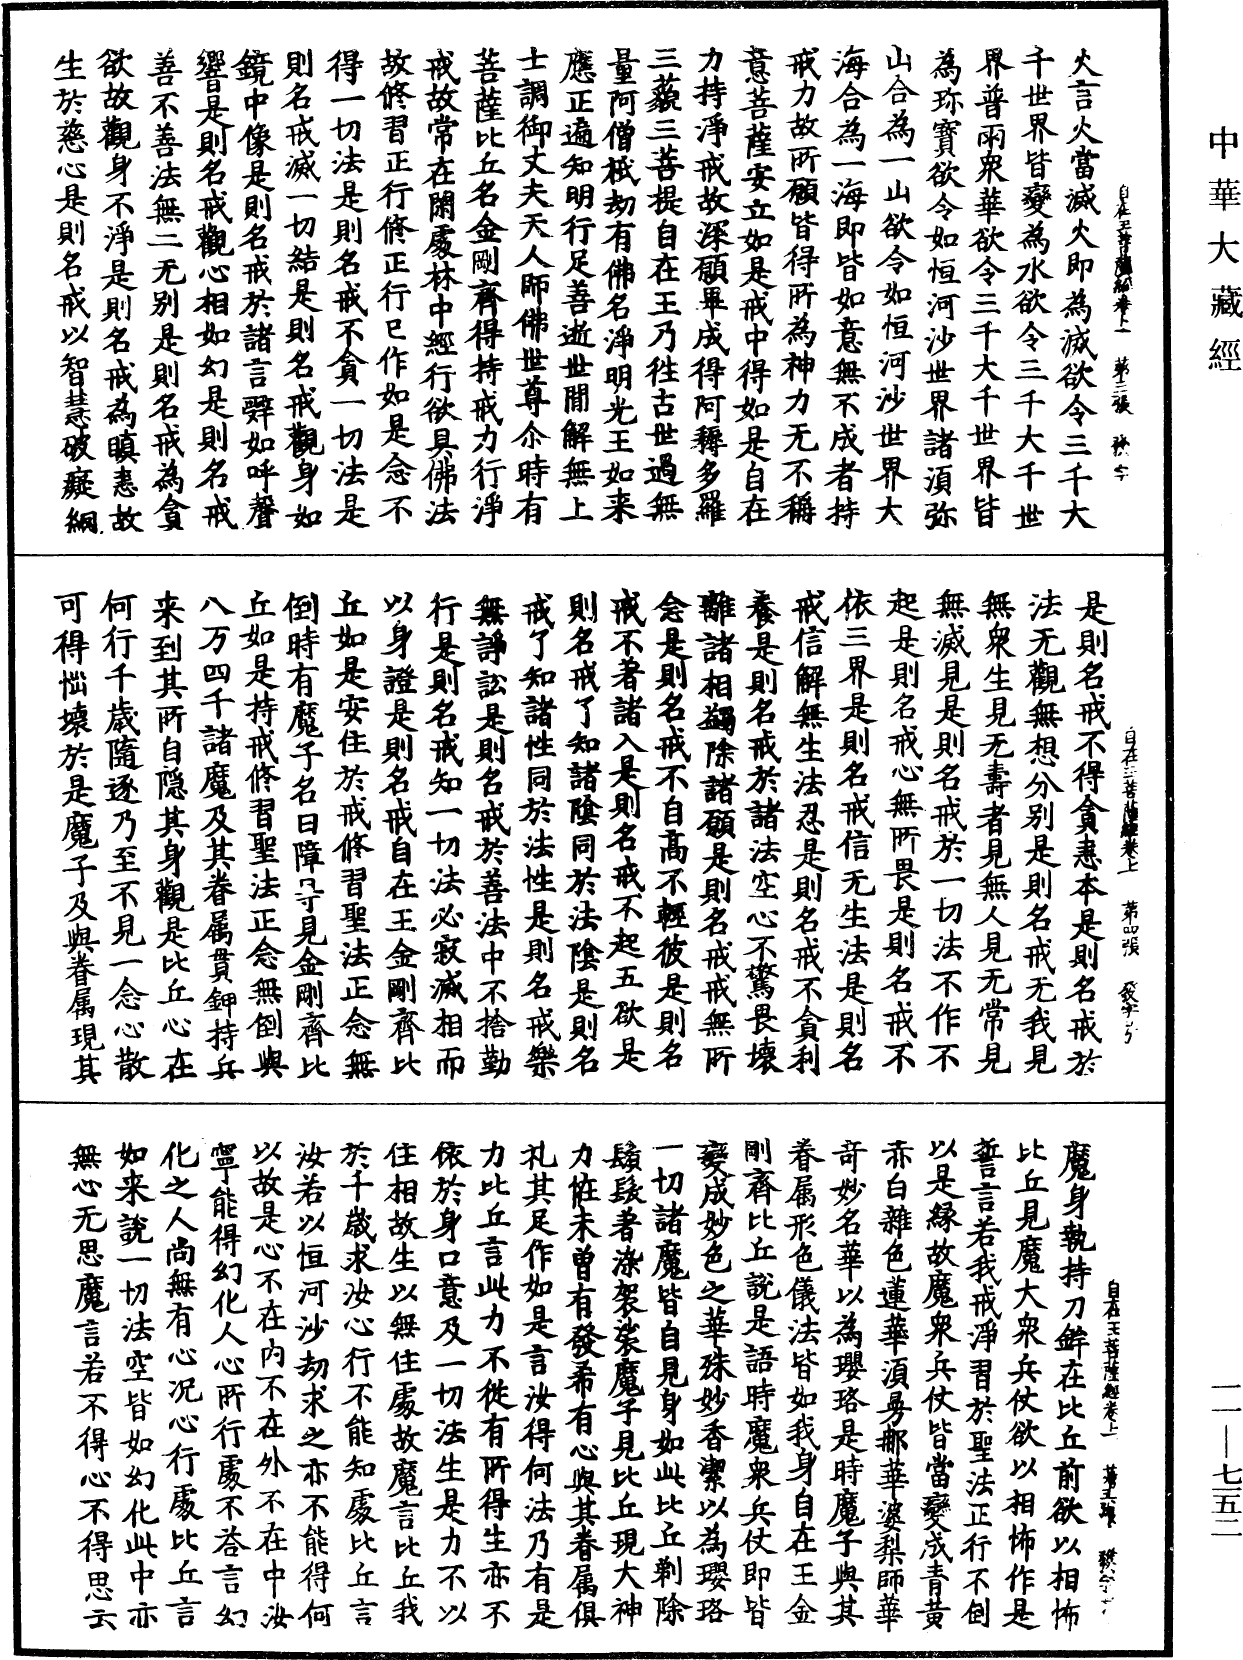 中華大藏經
自在王菩薩經卷下 第三張
火言火當滅火即為滅欲令三千大
千世界皆變為水欲令三千大千世
界普雨衆華欲令三千大千世界皆
為珎寶欲令如恒河沙世界諸湏弥
山合為一山欲令如恒河沙世界大
海合為一海即皆如意無不成者持
戒力故所願皆得所為神力无不稱
意菩薩安立如是戒中得如是自在
力持淨戒故深願畢成得阿耨多羅
三藐三菩提自在王乃徃古世過無
量阿僧祇劫有佛名淨明光王如来
應正遍知明行足善逝世間解無上
士調御丈夫天人師佛世尊尒時有
菩薩比丘名金剛齊得持戒力行淨
戒故常在閑處林中經行欲具佛法
故修習正行修正行已作如是念不
得一切法是則名戒不貪一切法是
則名戒滅一切結是則名戒觀身如
鏡中像是則名戒於諸言辭如呼聲
響是則名戒觀心相如幻是則名戒
善不善法無二无別是則名戒為貪
欲故觀身不淨是則名戒為瞋恚故
生於慈心是則名戒以智慧破癡網
自在王菩薩經卷上 第四張
是則名戒不得貪恚本是則名戒於
法无觀無想分別是則名戒无我見
無衆生見无壽者見無人見无常見
無滅見是則名戒於一切法不作不
起是則名戒心無所畏是則名戒不
依三界是則名戒信无生法是則名
戒信解無生法忍是則名戒不貪利
養是則名戒於諸法空心不驚畏壞
離諸相蠲除諸願是則名戒戒無所
念是則名戒不自高不輕彼是則名
戒不著諸入是則名戒不起五欲是
則名戒了知諸陰同於法陰是則名
戒了知諸性同於法性是則名戒樂
無諍訟是則名戒於善法中不捨勤
行是則名戒知一切法必寂滅相而
以身證是則名戒自在王金剛齊比
丘如是安住於戒修習聖法正念無
倒時有魔子名曰障导見金剛齊比
丘如是持戒修習聖法正念無倒與
八万四千諸魔及其眷属貫鉀持兵
来到其所自隐其身觀是比丘心在
何行千歲隨逐乃至不見一念心散
可得惱壞於是魔子及與眷属現其
自在王菩薩經卷上 第五張
魔身執持刀鉾在比丘前欲以相怖
比丘見魔大衆兵仗欲以相怖作是
誓言若我戒淨習於聖法正行不倒
以是縁故魔衆兵仗皆當變成青黄
赤白雜色蓮華湏曼那華婆梨師華
竒妙名華以為瓔珞是時魔子與其
眷属形色儀法皆如我身自在王金
剛齊比丘說是語時魔衆兵仗即皆
變成妙色之華殊妙香潔以為瓔珞
一切諸魔皆自見身如此比丘剃除
鬚髮著染袈裟魔子見比丘現大神
力恠未曽有發希有心與其眷属俱
礼其足作如是言汝得何法乃有是
力比丘言此力不從有所得生亦不
依於身口意及一切法生是力不以
住相故生以無住處故魔言比丘我
於千歲求汝心行不能知處比丘言
汝若以恒河沙劫求之亦不能得何
以故是心不在内不在外不在中汝
寧能得幻化人心所行處不荅言幻
化之人尚無有心况心行處比丘言
如来說一切法空皆如幻化此中亦
無心无思魔言若不得心不得思云
一一—七五二